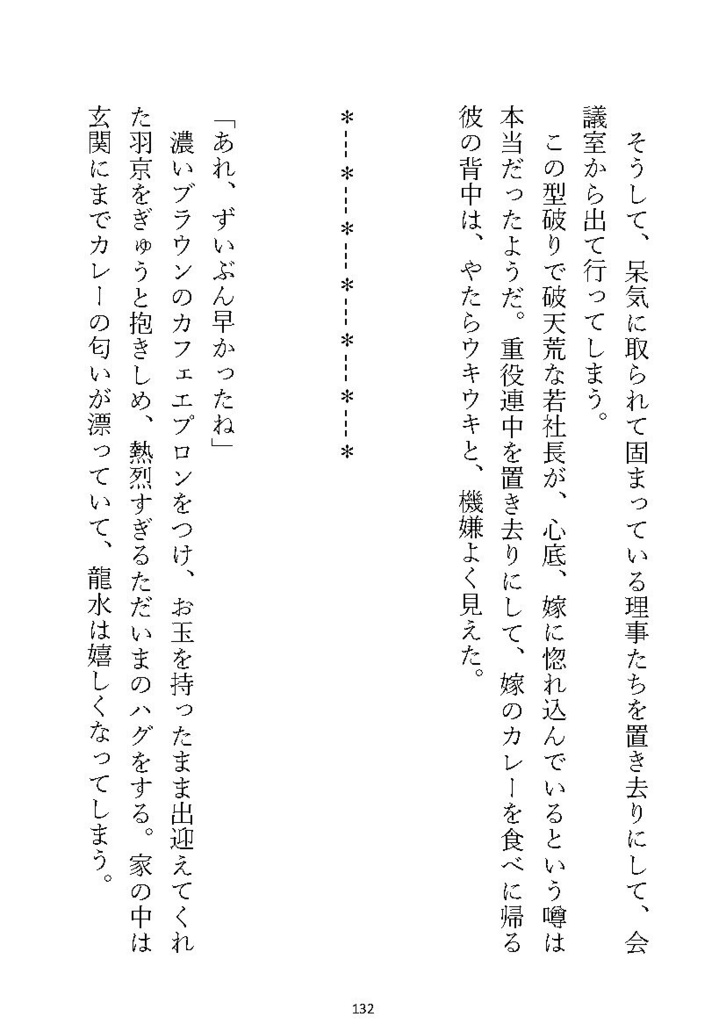 そうして、呆気に取られて固まっている理事たちを置き去りにして、会
議室から出て行ってしまう。
　この型破りで破天荒な若社長が、心底、嫁に惚れ込んでいるという噂は
本当だったようだ。重役連中を置き去りにして、嫁のカレーを食べに帰る
彼の背中は、やたらウキウキと、機嫌よく見えた。
*---*---*---*---*---*---*
「あれ、ずいぶん早かったね」
　濃いブラウンのカフェエプロンをつけ、お玉を持ったまま出迎えてくれ
た羽京をぎゅうと抱きしめ、熱烈すぎるただいまのハグをする。家の中は
玄関にまでカレーの匂いが漂っていて、龍水は嬉しくなってしまう。
132